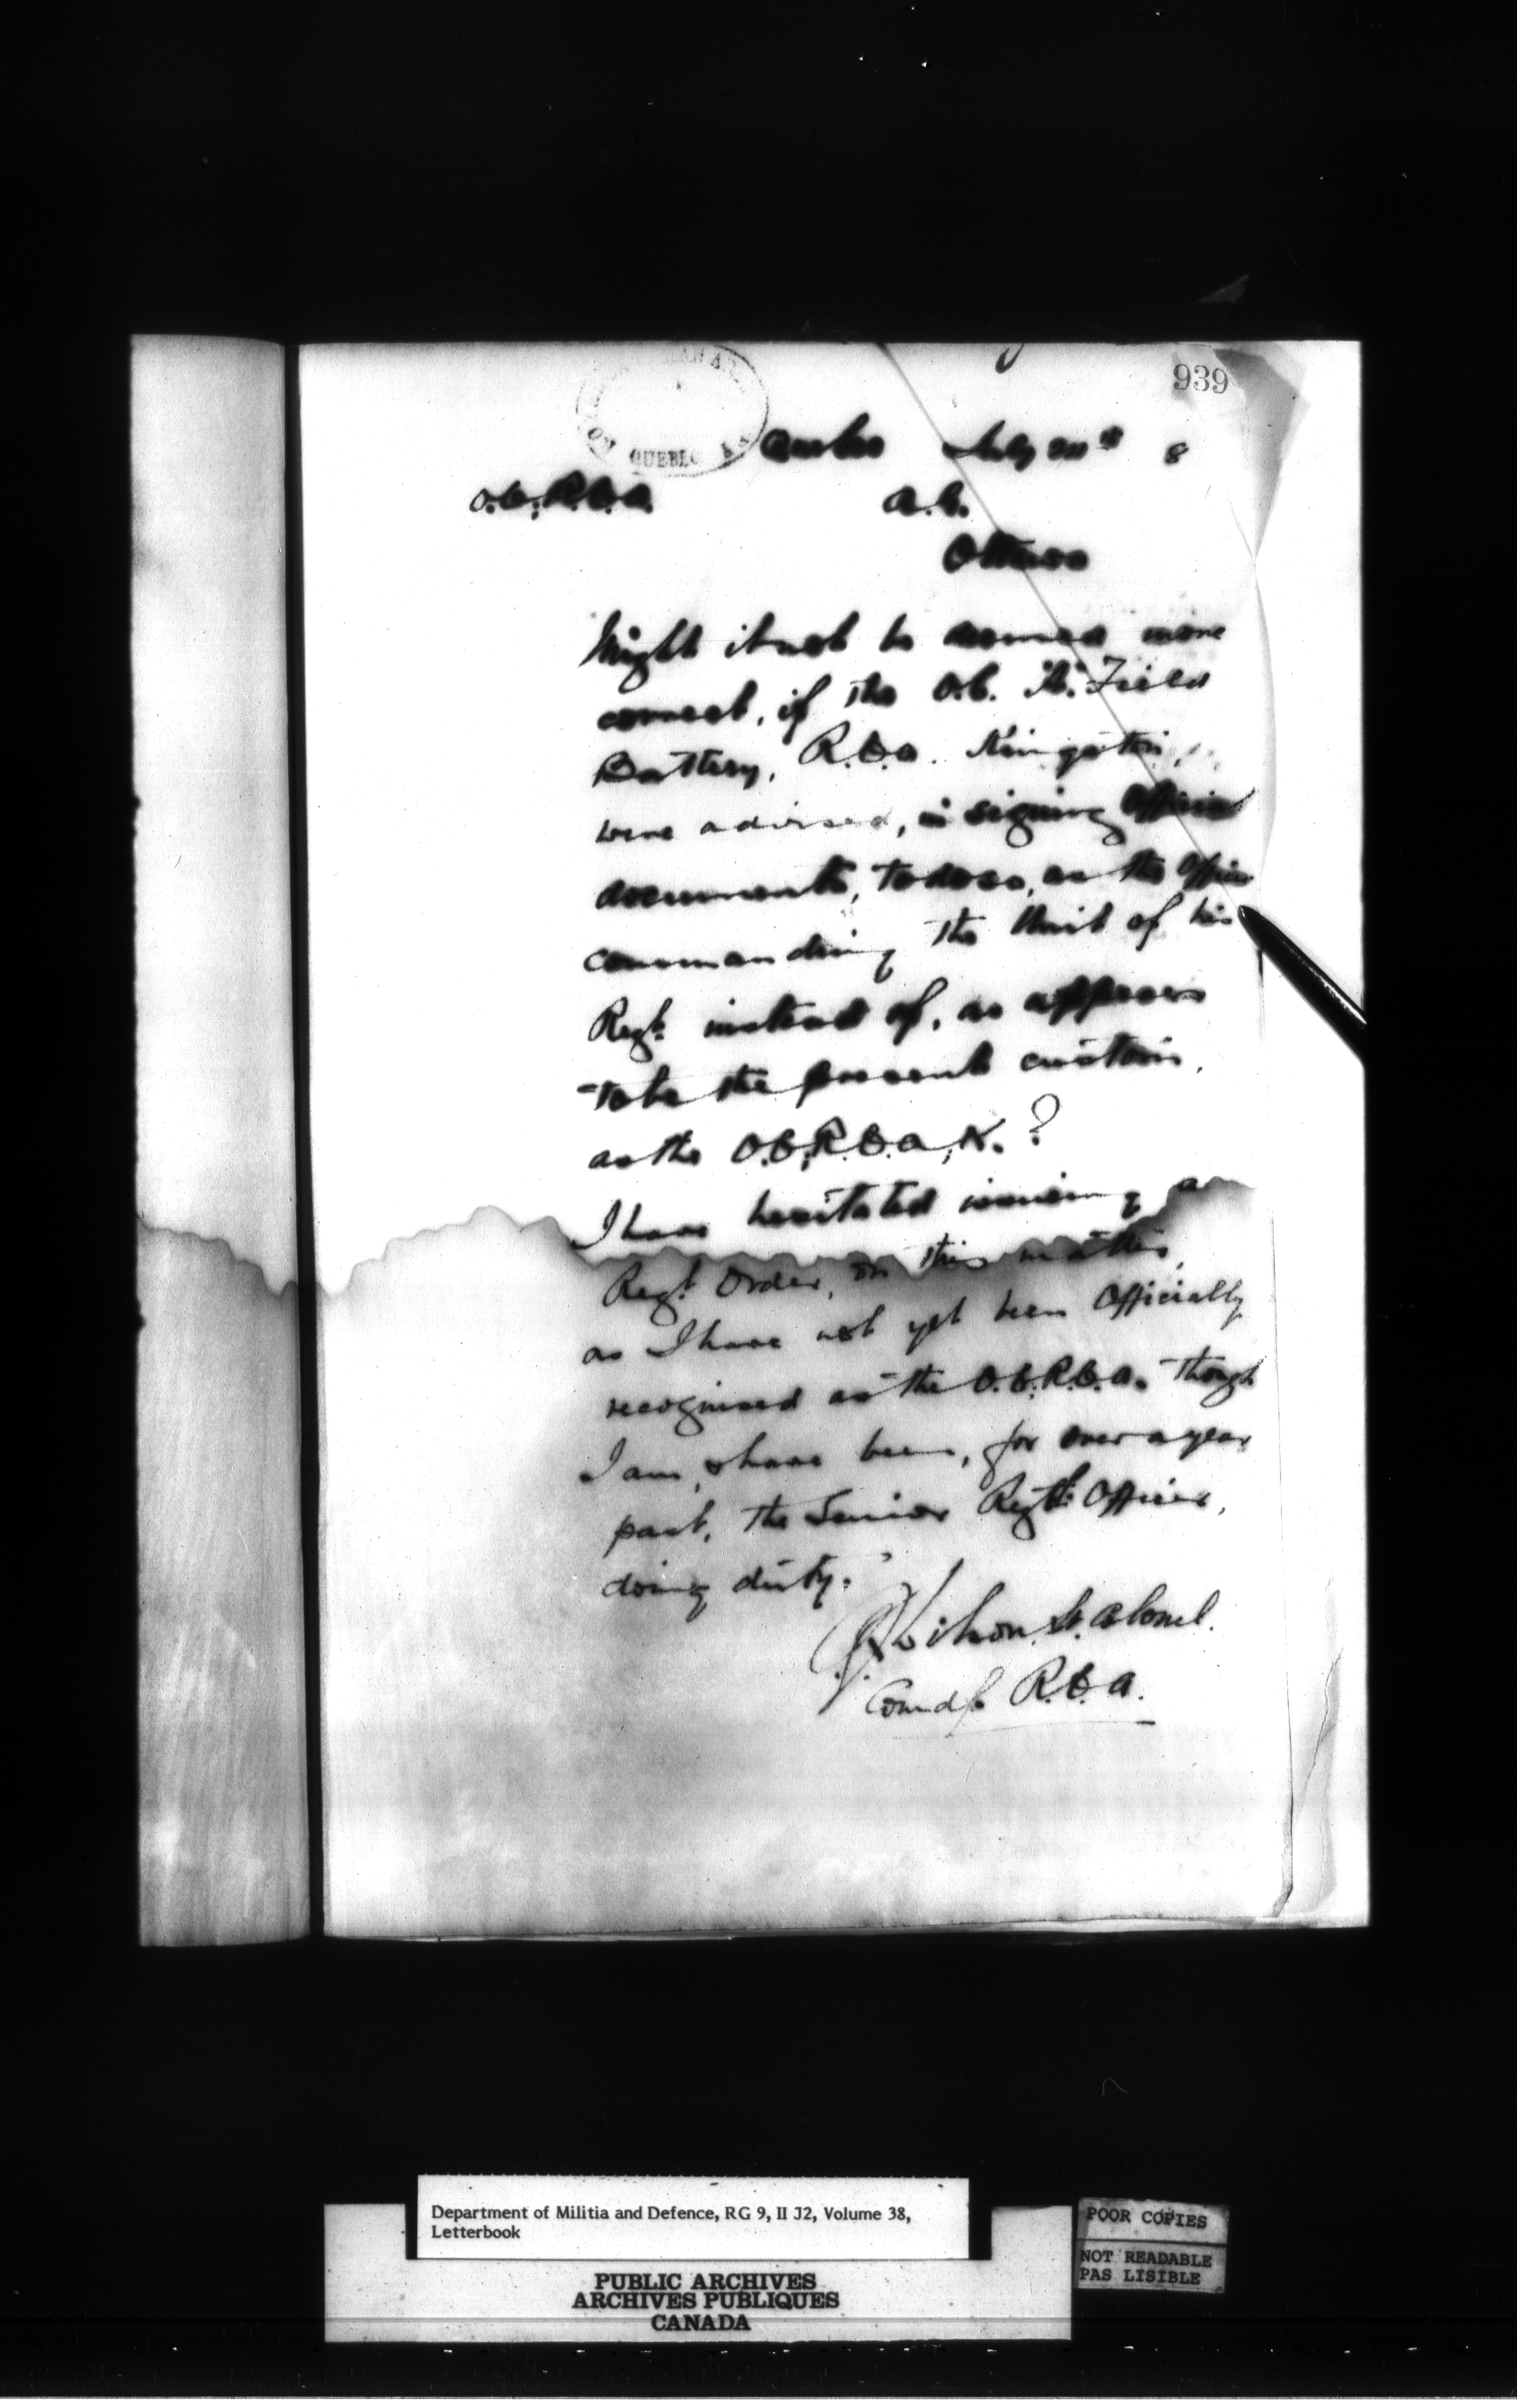 939
QUEBEC
Quebec July 20th 8
O.C., R.C.A. A.G.
Ottawa
Might it not be deemed more
correct, if the O.C. "A" Field
Battery, R.C.A. Kingston,
were advised, in signing Official
documents, to do so, as the Officer
commanding the Unit of his
Regt. instead of, as appears
to be the present custom,
as the O.C., R.C.A., K.?
I have hesitated issuing a
Regt. Order, on this matter,
as I have not yet been Officially
recognised as the O.C. R.C.A. though
I am, & have been, for over a year
past, the Senior Regtl. Officer,
doing duty.
Wilson. Lt. Colonel.
Comdg. R.C.A.
Department of Militia and Defence, RG 9, II J2, Volume 38,
Letterbook
POOR COPIES
NOT READABLE
PAS LISIBLE
PUBLIC ARCHIVES
ARCHIVES PUBLIQUES
CANADA